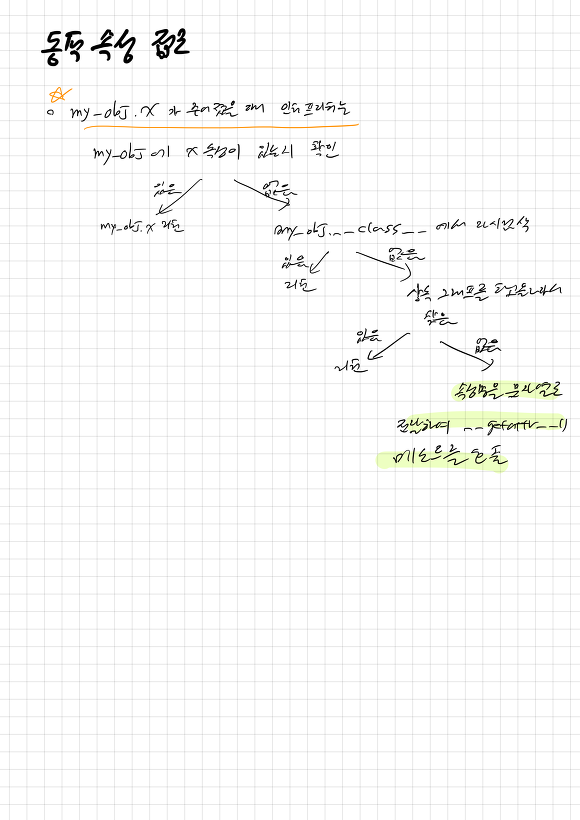 동적 속성 접근
☆
○ my_obj.x 가 주어졌을 때 인터프리터는
my_obj에 x 속성이 있는지 확인
있음 없음
my_obj.x 리턴 my_obj.__class__ 에서 다시 검색
있음 없음
리턴 상속 그래프를 타고 올라가서
찾음
있음 없음
리턴
속성명을 문자열로
전달하여 __getattr__()
메소드를 호출